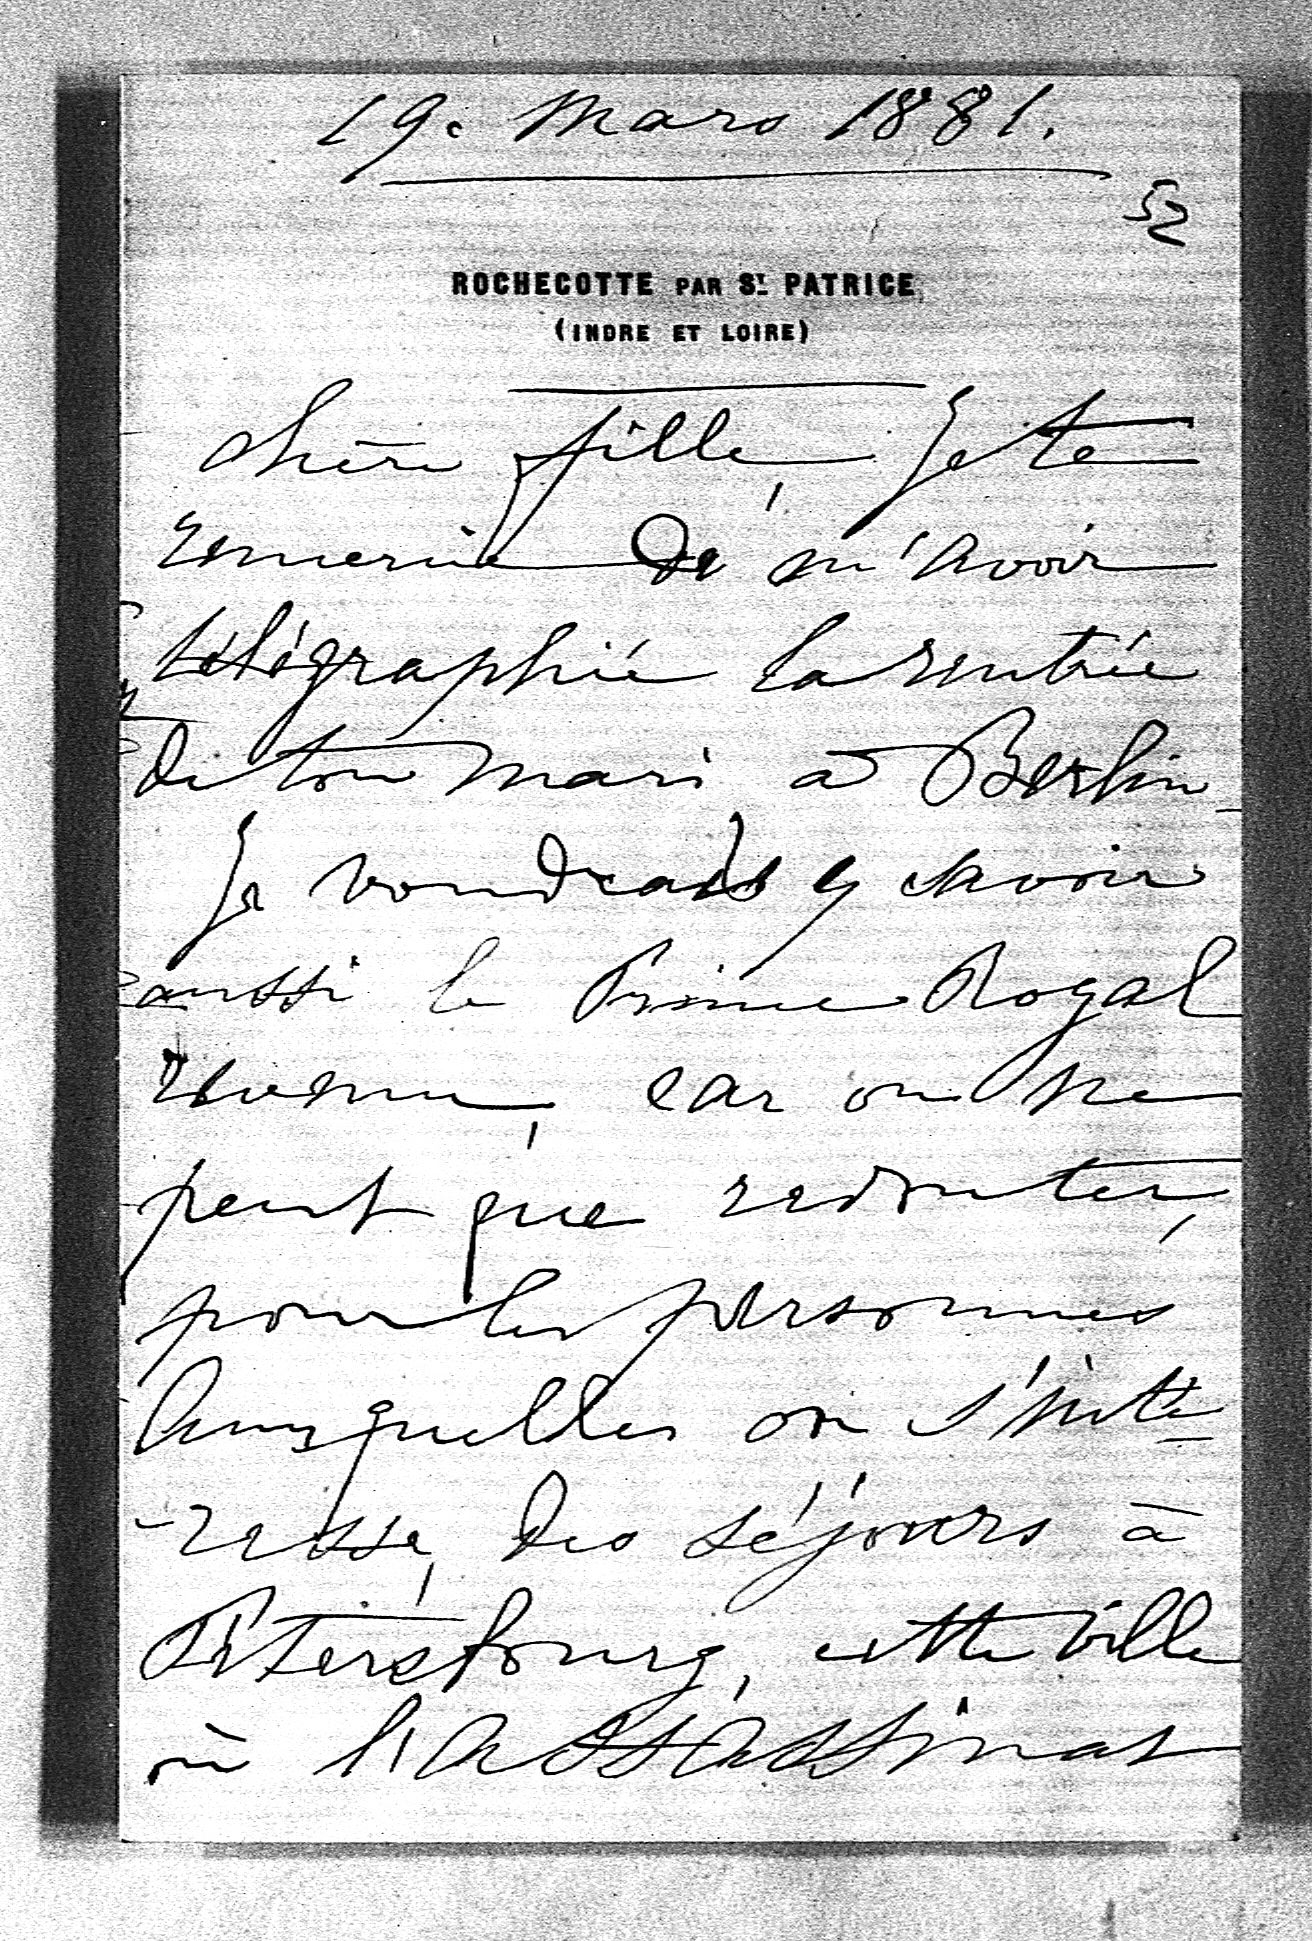 19. Mars 1881.
52
ROCHECOTTE PAR ST. PATRICE
(INDRE ET LOIRE)
chère fille, Je te
remercie de m'avoir
télégraphié la rentrée
de ton mari à Berlin
Je voudrais y savoir
aussi le Prince Royal
revenu, car on ne
peut que redouter,
pour les personnes
auxquelles on s'inté-
-resse, des séjours à
Pétersbourg, cette ville
où l'assassinat